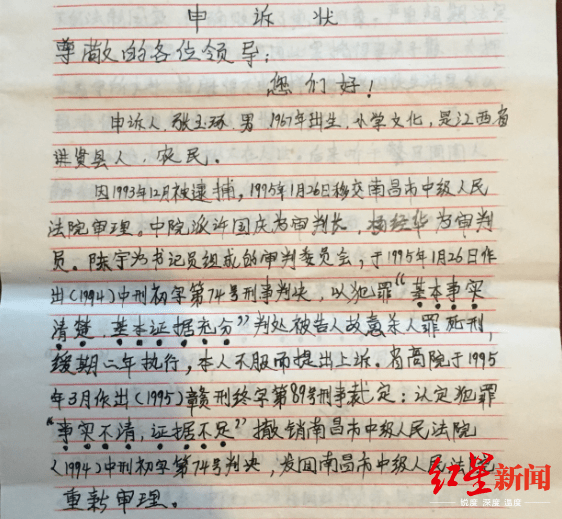 申诉状
尊敬的各位领导：
您们好！
申诉人张玉环.男.1967年出生.小学文化，是江西省
进贤县人.农民。
因1993年12月被逮捕，1995年1月26日移交南昌市中级人民
法院审理。中院派许国庆为审判长，杨经华为审判
员。陈宇为书记员组成的审判委员会，于1995年1月26日作
出（1994）中刑初字第74号刑事判决，以犯罪“基本事实
清楚，基本证据充分”判处被告人故意杀人罪死刑，
缓期二年执行，本人不服而提出上诉。省高院于1995
年3月作出（1995）赣刑终字第89号刑事裁定：认定犯罪
“事实不清，证据不足”撤销南昌市中级人民法院
（1994）中刑初字第74号判决，发回南昌市中级人民法院
重新审理。
红星新闻
锐度 深度 温度